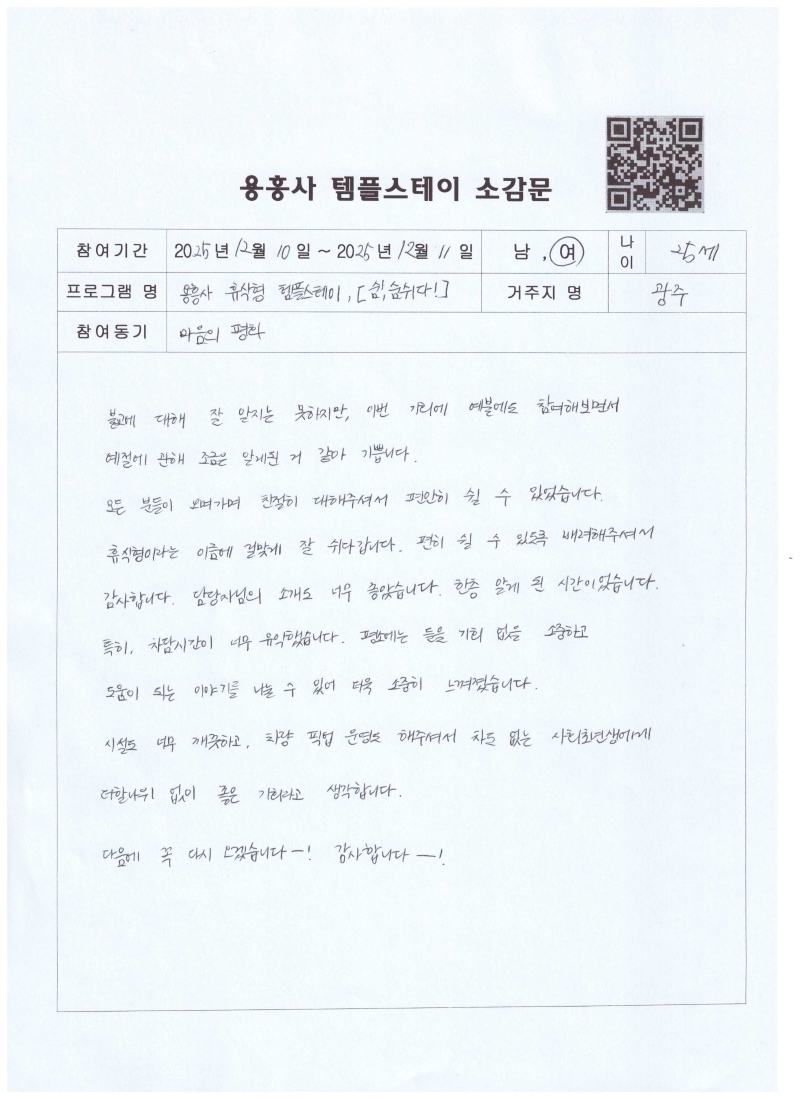 용흥사 템플스테이 소감문
참여기간 2025년 12월 10일 ~ 2025년 12월 11일 남, 여 나이 25세
프로그램 명 용흥사 휴식형 템플스테이, [쉼, 숨쉬다!] 거주지 명 광주
참여동기 마음의 평화
불교에 대해 잘 알지는 못하지만, 이번 기회에 예불에도 참여해보면서
예절에 관해 조금은 알게된 거 같아 기쁩니다.
모든 분들이 오며가며 친절히 대해주셔서 편안히 쉴 수 있었습니다.
휴식형이라는 이름에 걸맞게 잘 쉬다갑니다. 편히 쉴 수 있도록 배려해주셔서
감사합니다. 담당자님의 소개도 너무 좋았습니다. 한층 알게 된 시간이었습니다.
특히, 차담시간이 너무 유익했습니다. 평소에는 들을 기회 없을 소중하고
도움이 되는 이야기를 나눌 수 있어 더욱 소중히 느껴졌습니다.
시설도 너무 깨끗하고, 차량 픽업 운영도 해주셔서 차도 없는 사회초년생에게
더할나위 없이 좋은 기회라고 생각합니다.
다음에 꼭 다시 오겠습니다ㅡ! 감사합니다ㅡ!